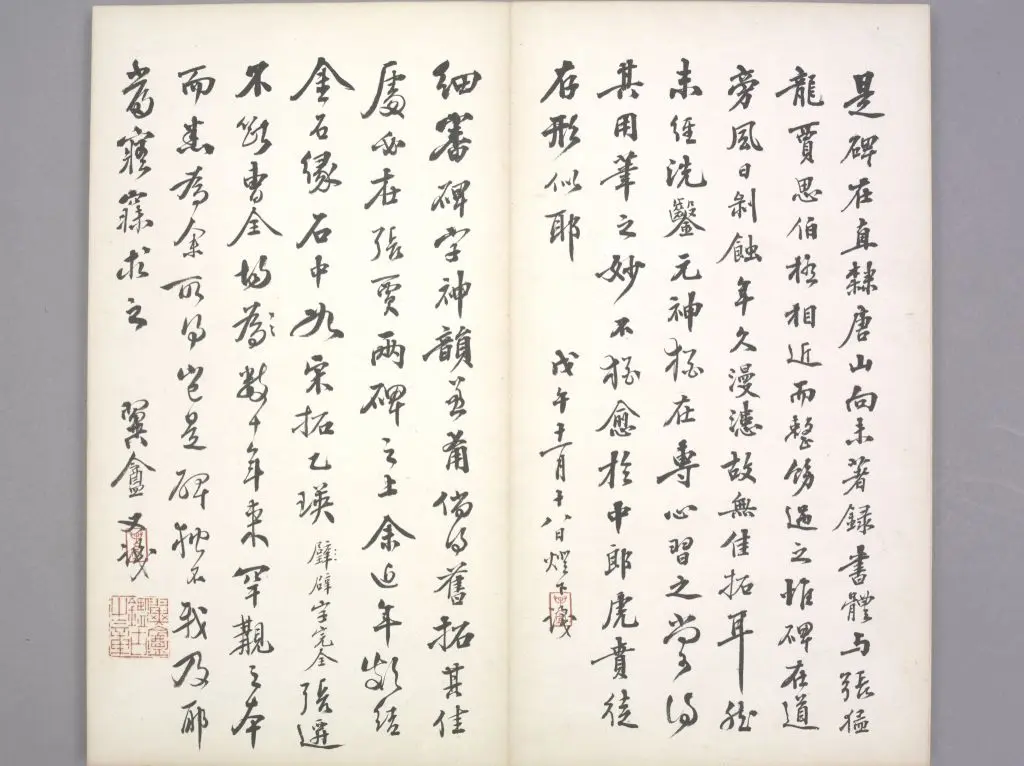 是碑在直隸唐山向未著録書體與張猛
龍賈思伯極相近而整飭過之惟碑在道
旁風日剝蝕年久漫漶故無佳拓耳然
未經洗鑿元神猶在專心習之得
其用筆之妙不猶愈於中郎虎賁徒
存形似耶
戊午十一月十八日燈下識
細審碑字神韻並茂倘得舊拓其佳
處必在張賈兩碑之上余近年頗結
金石緣石中如宋拓乙瑛辟字完全張遷
不曹全數十年來罕覯之本
而悉為余所得豈是碑獨不我及耶
當寤寐求之
翼盦又識